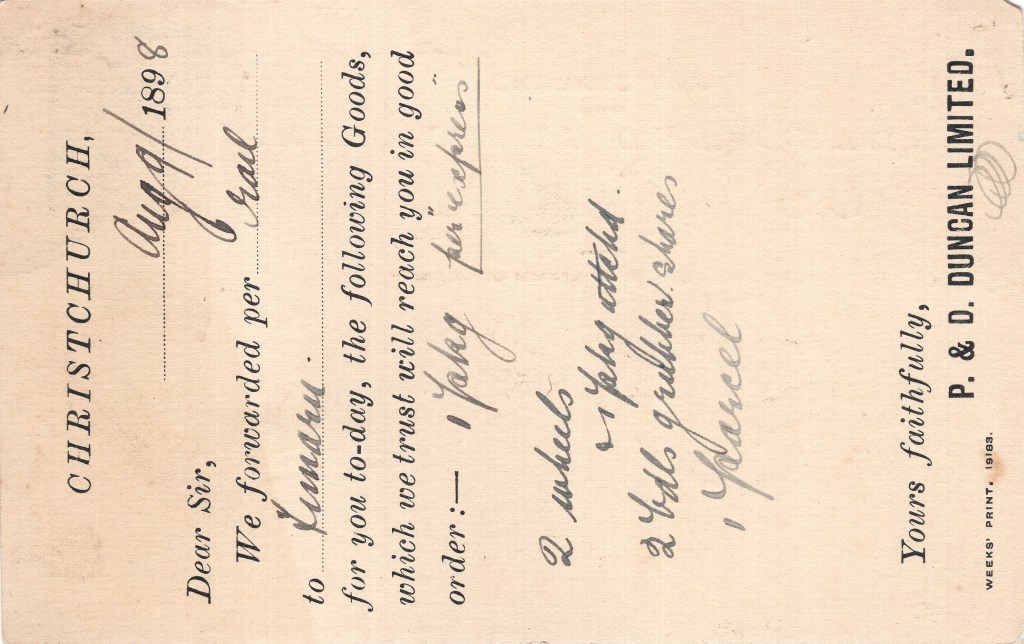 CHRISTCHURCH,
Aug 9/ 1898
Dear Sir,
We forwarded per rail
to Timaru
for you to-day, the following Goods,
which we trust will reach you in good
order:— 1 pkg per "express"
2 wheels
& 1 pkg attchd.
2 bdls grubber shares
1 Parcel
Yours faithfully,
P. & D. DUNCAN LIMITED.
WEEKS' PRINT, 19183.